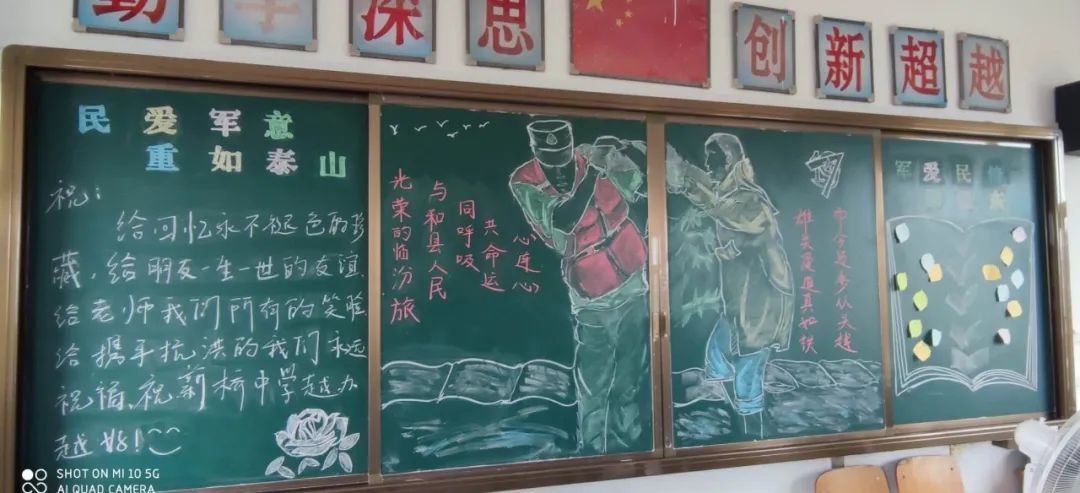 勤 学 深 思
创 新 超 越
民 爱 军 意
重 如 泰 山
祝：
给回忆永不褪色的珍
藏，给朋友一生一世的友谊
给老师我们所有的笑脸
给携手抗洪的我们永远
祝福，祝新桥中学越办
越好！
光荣的临汾旅
与和县人民
同呼吸
共命运
心连心
雄关漫道真如铁
而今迈步从头越
军 爱 民
SHOT ON MI 10 5G
AI QUAD CAMERA